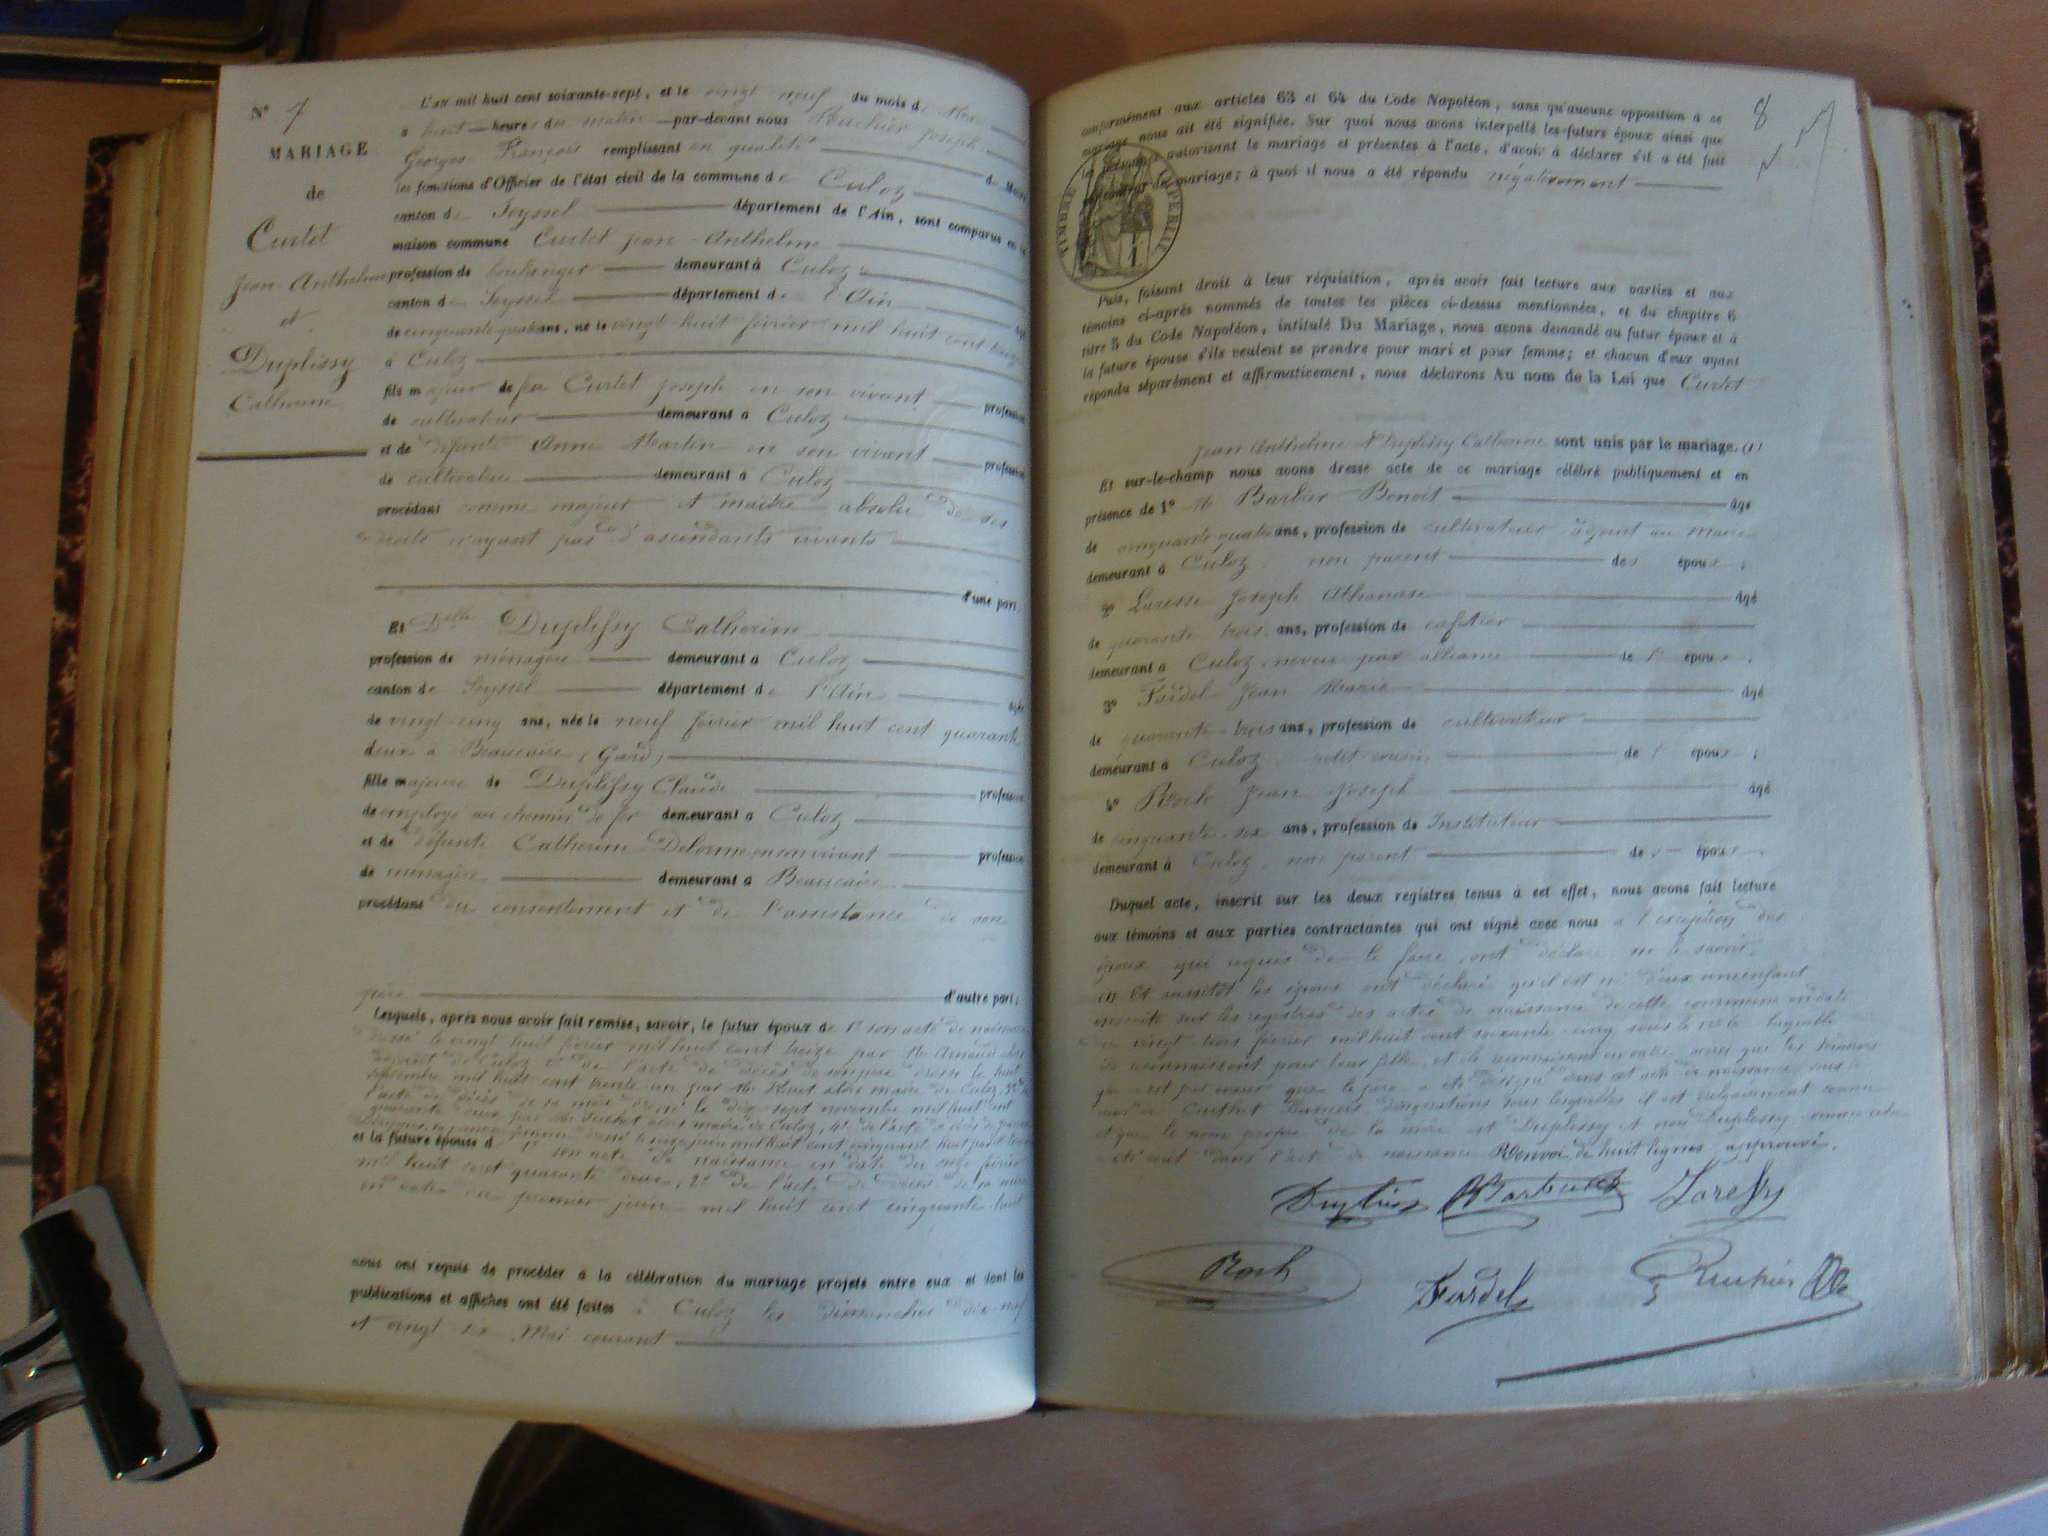 N° 7
MARIAGE
de
Curtet
Jean-Anthelme
et
Duplissy
Catherine
L'an mil huit cent soixante-sept, et le vingt neuf du mois de Mai
à huit heures du matin par-devant nous Ruchier Joseph
Georges François remplissant en qualité de Maire
les fonctions d'Officier de l'état civil de la commune de Culoz
canton de Seyssel département de l'Ain, sont comparus en la
maison commune Curtet Jean-Anthelme
profession de boulanger demeurant à Culoz
canton de Seyssel département de l'Ain
de cinquante quatre ans, né le vingt huit février mil huit cent treize
à Culoz
fils majeur de feu Curtet Joseph en son vivant profession
de cultivateur demeurant à Culoz
et de défunte Anne Martin en son vivant profession
de cultivatrice demeurant à Culoz
procédant comme majeur et maître absolu de ses
droits n'ayant pas d'ascendants vivants
d'une part,
Et Delle Duplissy Catherine
profession de ménagère demeurant à Culoz
canton de Seyssel département de l'Ain âgée
de vingt-cinq ans, née le neuf février mil huit cent quarante
deux à Beaucaire (Gard)
fille majeure de Duplissy Claude profession
de employé au chemin de fer demeurant à Culoz
et de défunte Catherine Delorme en son vivant profession
de ménagère demeurant à Beaucaire
procédant du consentement et de l'assistance de son
père d'autre part;
Lesquels, après nous avoir fait remise, savoir, le futur époux de 1° son acte de naissance
dressé le vingt huit février mil huit cent treize par M. Arnaud alors
de Culoz 2° de l'acte de décès de son père dressé le huit
septembre mil huit cent trente un par M. alors maire de Culoz, 3° de
l'acte de décès de sa mère le dix sept novembre mil huit cent
quarante deux par M. alors maire de Culoz, 4° de l'acte de décès de
mil huit cent cinquante huit
et la future épouse d 1° son acte de naissance en date du onze février
mil huit cent quarante deux, 2° de l'acte de décès de sa mère
en date du premier juin mil huit cent cinquante huit
nous ont requis de procéder à la célébration du mariage projeté entre eux et dont les
publications et affiches ont été faites à Culoz les dimanches dix-neuf
et vingt six Mai courant
8
conformément aux articles 63 et 64 du Code Napoléon, sans qu'aucune opposition à ce
mariage nous ait été signifiée. Sur quoi nous avons interpellé les futurs époux ainsi que
les personnes autorisant le mariage et présentes à l'acte, d'avoir à déclarer s'il a été fait
un contrat de mariage; à quoi il nous a été répondu négativement
TIMBRE IMPERIAL
1
Puis, faisant droit à leur réquisition, après avoir fait lecture aux parties et aux
témoins ci-après nommés de toutes les pièces ci-dessus mentionnées, et du chapitre 6
titre 5 du Code Napoléon, intitulé Du Mariage, nous avons demandé au futur époux et à
la future épouse s'ils veulent se prendre pour mari et pour femme; et chacun d'eux ayant
répondu séparément et affirmativement, nous déclarons Au nom de la Loi que Curtet
Jean Anthelme et Duplissy Catherine sont unis par le mariage. (1)
Et sur-le-champ nous avons dressé acte de ce mariage célébré publiquement et en
présence de 1° M. Barbier Benoit âgé
de cinquante quatre ans, profession de cultivateur adjoint au Maire
demeurant à Culoz non parent des époux;
2° Laresse Joseph Athanase âgé
de quarante trois ans, profession de cafetier
demeurant à Culoz neveu par alliance de l' époux;
3° Fardel Jean Marie âgé
de quarante-trois ans, profession de cultivateur
demeurant à Culoz petit cousin de l' époux;
4° Roch Jean Joseph âgé
de cinquante-six ans, profession de Instituteur
demeurant à Culoz non parent des époux.
Duquel acte, inscrit sur les deux registres tenus à cet effet, nous avons fait lecture
aux témoins et aux parties contractantes qui ont signé avec nous à l'exception des
époux qui requis de le faire ont déclaré ne le savoir.
(1) Et aussitôt les époux ont déclaré qu'il est né d'eux un enfant
inscrit sur les registres des actes de naissance de cette commune en date
du vingt trois février mil huit cent soixante-cinq sous le n° laquelle
ils reconnaissent pour leur fille, et ils reconnaissent en outre ainsi que les témoins
que le père a été désigné dans cet acte de naissance sous le
nom de Curthet François désignations sous lesquelles il est vulgairement connu
et que le nom propre de la mère est Duplissy et non Duplessy comme cela
a été écrit dans l'acte de naissance Renvoi de huit lignes approuvé.
Duplissy Barbier Laressy
Roch Fardel Ruchier